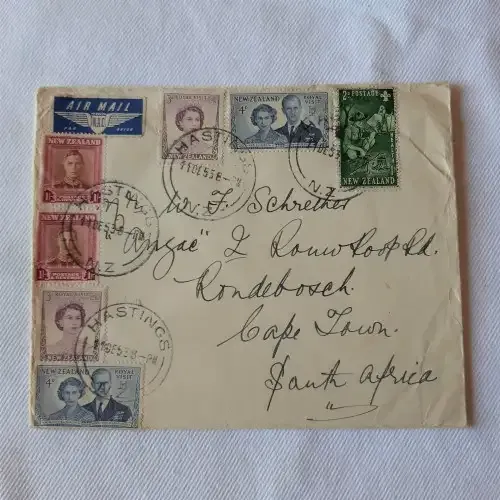 AIR MAIL
PAR AVION
3d ROYAL VISIT
NEW ZEALAND
NEW ZEALAND ROYAL VISIT
4d
2d POSTAGE
NEW ZEALAND
HASTINGS
11 DE 53 8 - PM
N.Z.
NEW ZEALAND
1/-
NEW ZEALAND
1/-
HASTINGS
11 DE 53 8 - PM
N.Z.
NEW ZEALAND
HASTINGS
11 DE 53 8 - PM
NEW ZEALAND ROYAL VISIT
4d
"Anzac" 2 Rouwkoop Rd.
Rondebosch
Cape Town.
South Africa